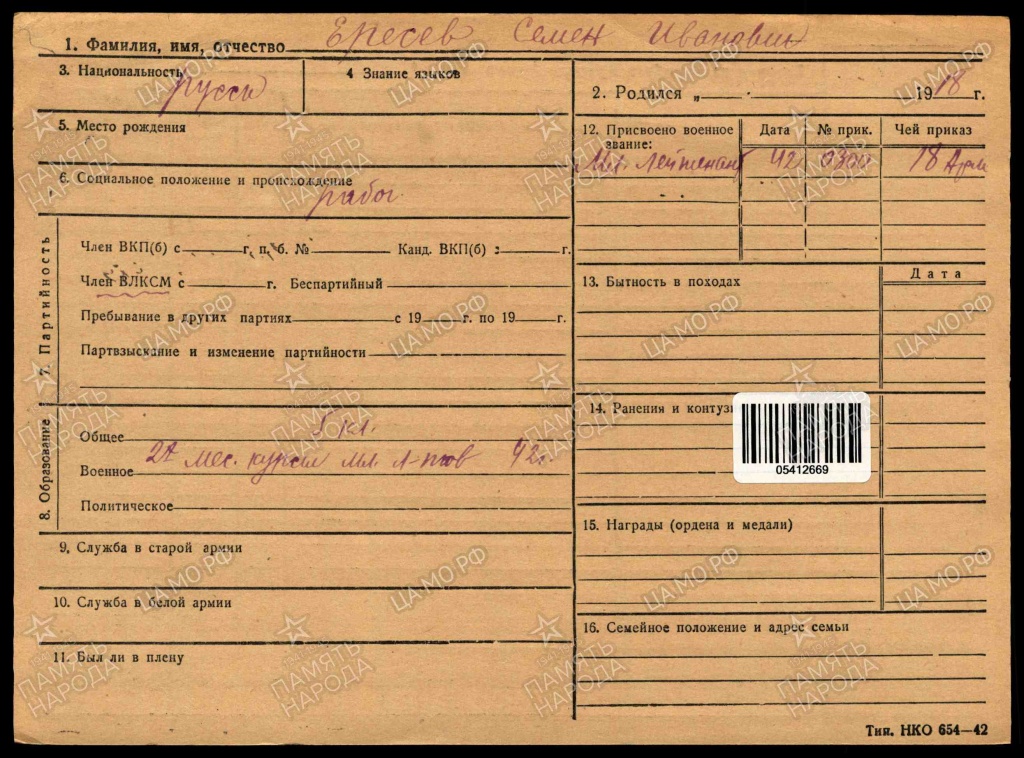 1. Фамилия, имя, отчество Ересев Семен Иванович
3. Национальность русск
4 Знание языков
2. Родился „ 1918 г.
5. Место рождения
12. Присвоено военное звание: Дата № прик. Чей приказ
Мл. Лейтенант 42 18 Арм
6. Социальное положение и происхождение
рабоч.
7. Партийность
Член ВКП(б) с г. п. б. № Канд. ВКП(б) с г.
Член ВЛКСМ с г. Беспартийный
Пребывание в других партиях с 19 г. по 19 г.
Партвзыскание и изменение партийности
13. Бытность в походах Дата
8. Образование
Общее 5 кл.
Военное мес. курсы мл. л-тов 42г.
Политическое
14. Ранения и контуз
05412669
15. Награды (ордена и медали)
9. Служба в старой армии
10. Служба в белой армии
16. Семейное положение и адрес семьи
11. Был ли в плену
Тип. НКО 654—42
ЦАМО.РФ
ПАМЯТЬ НАРОДА